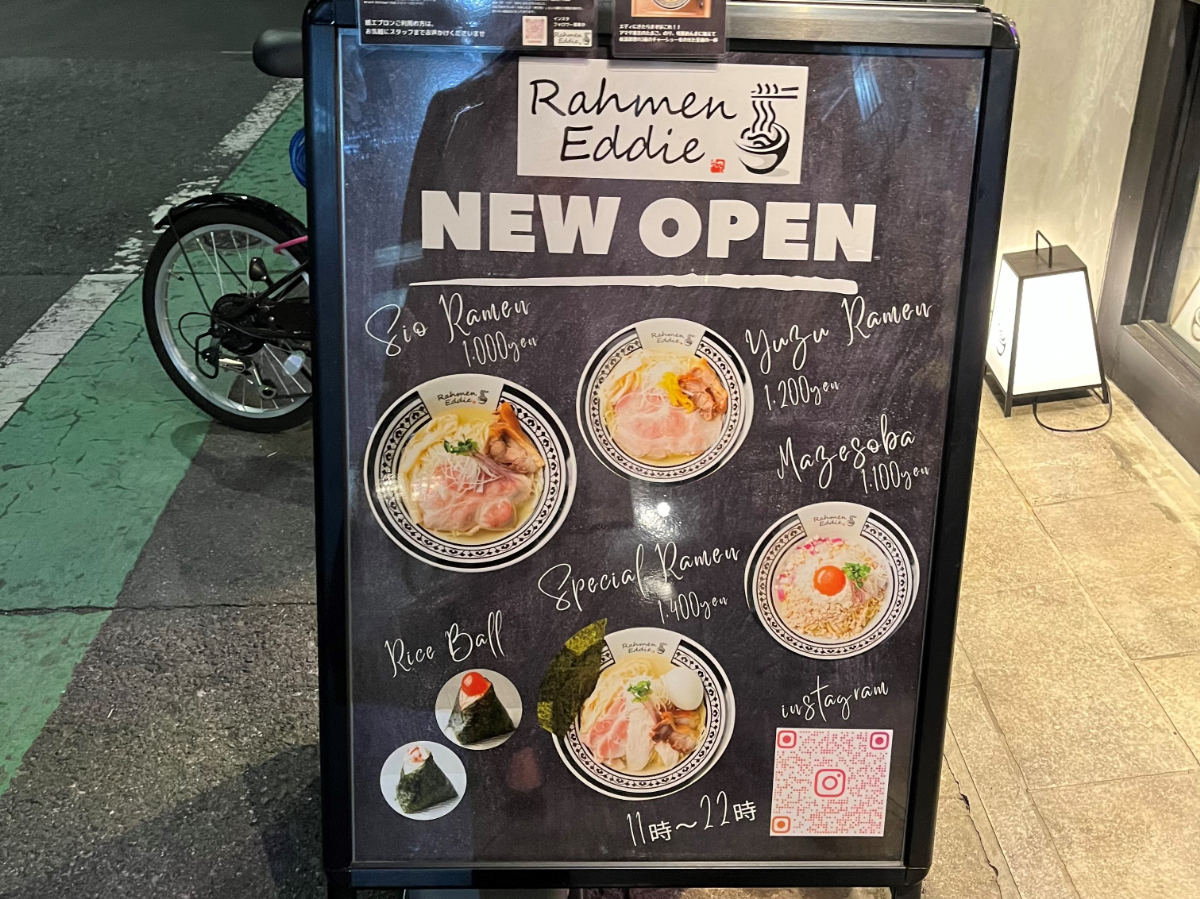 紙エプロンご利用の方は、
お気軽にスタッフまでお声かけくださいませ
インスタ
フォロワー募集中
Rahmen
Eddie
エディにきたらまずはこれ！！
Rahmen
Eddie
NEW OPEN
Sio Ramen
1.000yen
Yuzu Ramen
1.200yen
Rahmen
Eddie
Rahmen
Eddie
Mazesoba
1.100yen
Rahmen
Eddie
Special Ramen
1.400yen
Rahmen
Eddie
Rice Ball
instagram
11時～22時